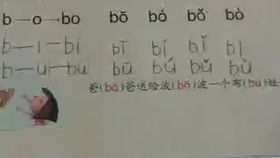 b—o—bo bō bó bǒ bò
b—i—bi bī bí bǐ bì
b—u—bu bū bú bǔ bù
爸(bà)爸送给波(bō)波一个布(bù)娃